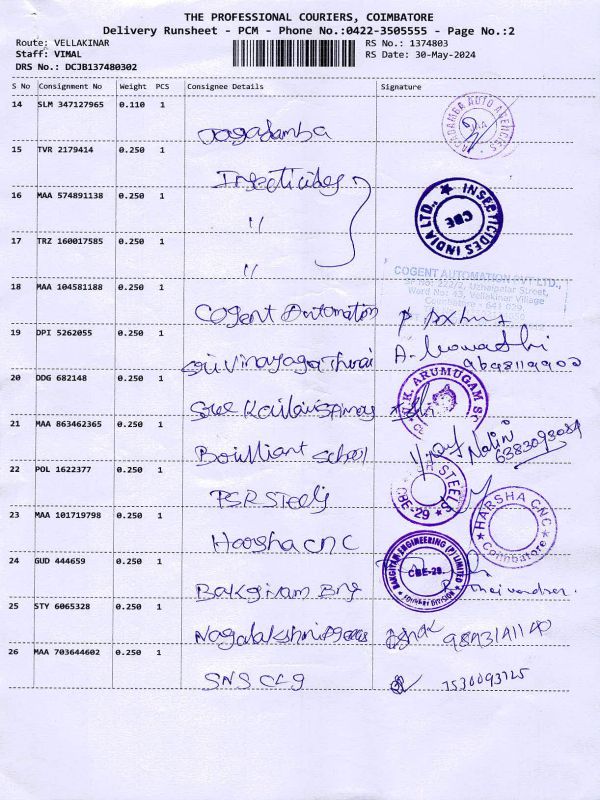 THE PROFESSIONAL COURIERS, COIMBATORE
Delivery Runsheet - PCM - Phone No.:0422-3505555 - Page No.:2
Route: VELLAKINAR
RS No.: 1374803
Staff: VIMAL
RS Date: 30-May-2024
DRS No.: DCJB137480302
S No Consignment No Weight PCS Consignee Details Signature
14 SLM 347127965 0.110 1
Jagadamba
15 TVR 2179414 0.250 1
Insecticides
16 MAA 574891138 0.250 1
"
INSECTICIDES INDIA LTD., ★ CBE
17 TRZ 160017585 0.250 1
"
COGENT AUTOMATION PVT LTD.,
Ward No: 43, Vellakinar Village
18 MAA 104581188 0.250 1
Cogent Automation
19 DPI 5262055 0.250 1
Sri Vinayaga Thurai
9698119900
20 DDG 682148 0.250 1
K. ARUMUGAM
21 MAA 863462365 0.250 1
Brilliant School Nalin 6383093089
22 POL 1622377 0.250 1
PSR Steels
STEELS ★ CBE-29
23 MAA 101719798 0.250 1
Harsha CNC
★ HARSHA CNC ★ Coimbatore
24 GUD 444659 0.250 1
ENGINEERING (P) LIMITED CBE-29.
25 STY 6065328 0.250 1
Ashok
26 MAA 703644602 0.250 1
SNS CLG 7530093725